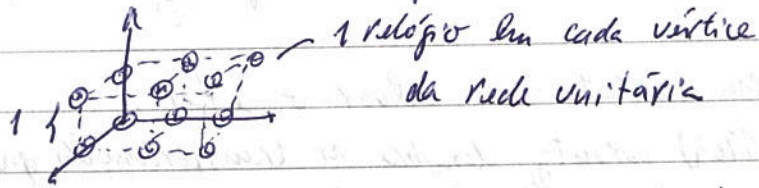 1 relógio em cada vértice
da rede unitária
1